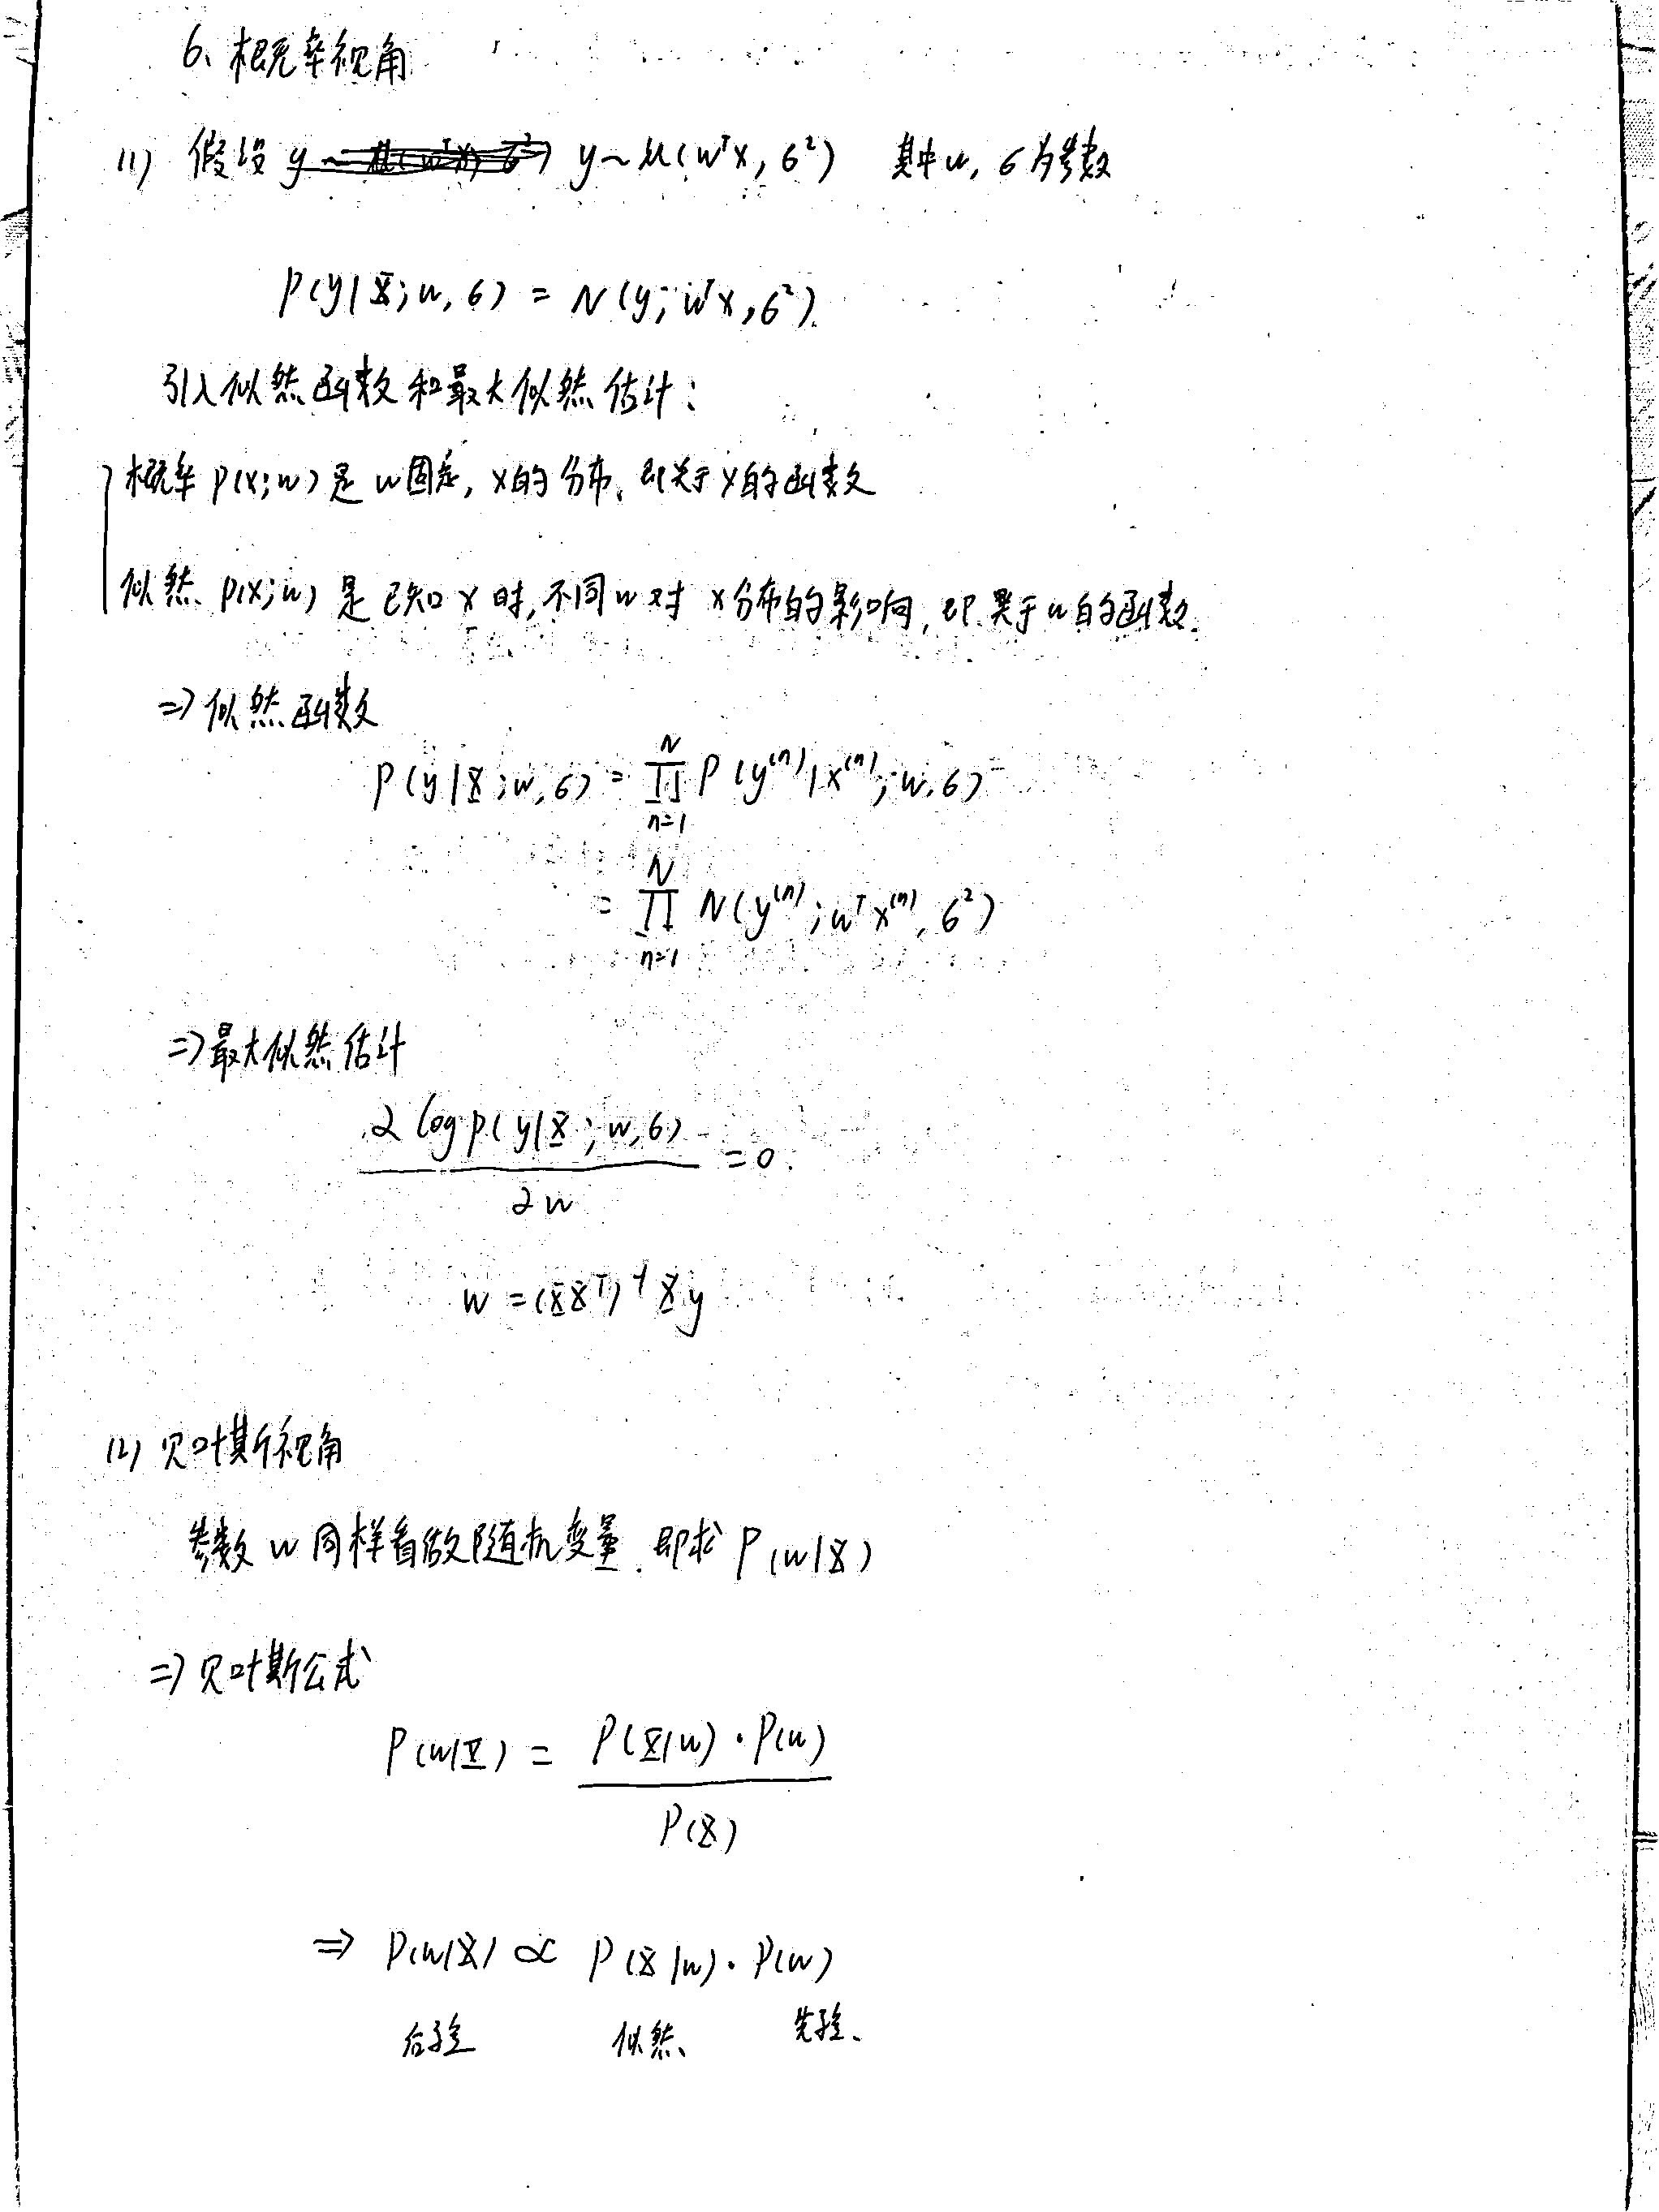 6、概率视角
(1) 假设 y~N(wᵀx, σ²) 其中w, σ为参数
P(y|X;w,σ) = N(y;wᵀx,σ²)
引入似然函数和最大似然估计:
概率 P(x;w) 是 w固定, x的分布, 即关于x的函数
似然 P(x;w) 是已知x时,不同w对x分布的影响, 即关于w的函数.
⇒似然函数
P(y|X;w,σ) = ∏ₙ₌₁ᴺ P(y⁽ⁿ⁾|x⁽ⁿ⁾;w,σ)
= ∏ₙ₌₁ᴺ N(y⁽ⁿ⁾;wᵀx⁽ⁿ⁾,σ²)
⇒最大似然估计
∂ log P(y|X;w,σ) / ∂w = 0
w = (XXᵀ)⁻¹Xy
(2) 贝叶斯视角
参数w同样看做随机变量. 即求 P(w|X)
⇒贝叶斯公式
P(w|X) = P(X|w)·P(w) / P(X)
⇒ P(w|X) ∝ P(X|w)·P(w)
后验 似然、 先验、